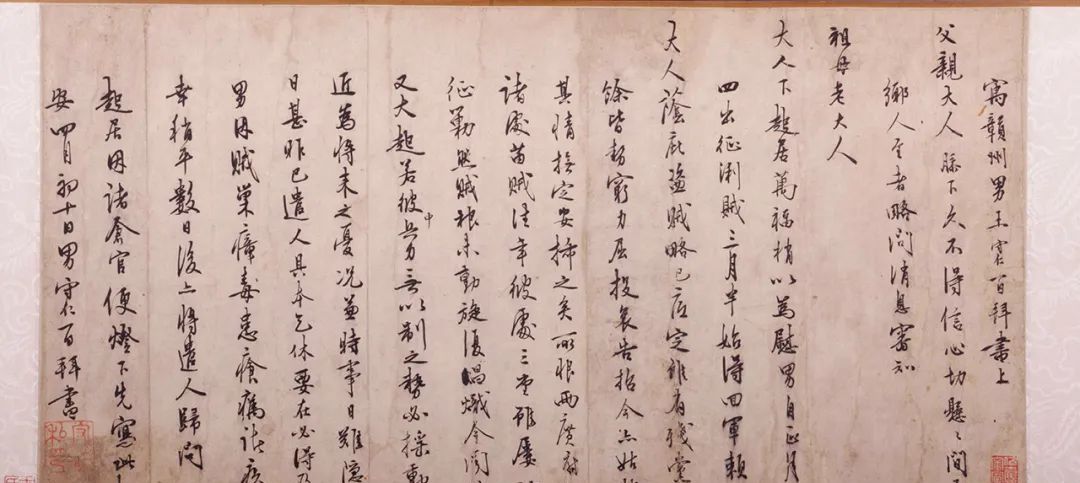 寓贛州男王守仁百拜書上
父親大人膝下久不得信心切懸〻間
鄉人至者略問消息審知
祖母老大人
大人下起居萬福稍以為慰男自正月
四出征浰賊三月半始得回軍賴
大人蔭庇盜賊略已底定雖有殘黨
餘皆勢窮力屈投哀告招今亦姑
其情撫定安插之矣所恨兩廣府
諸處苗賊往年彼處三堂雖屢
征勦然賊根未動旋復昌熾今聞
又大起若彼中兵力無以制之勢必搖動
近為將來之憂況兼時事日難隱
日甚昨已遣人具本乞休要在必得乃
男因賊巢瘴毒患瘡癘諸疾
幸稍平數日後亦將遣人歸問
起居因諸倉官便燈下先寫此
安四月初十日男守仁百拜書